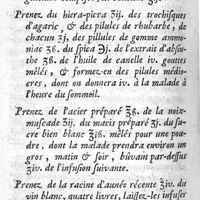 Prenez du hiera-piera ʒij. des trochisques
d'agaric & des pilules de rhubarbe, de
chacun ʒj, des pillules de gomme ammo-
niac ʒß. du spica ℈j. de l'extrait d'absin-
the ʒß. de l'huile de canelle iv. gouttes
mêlés, & formez-en des pilules médio-
cres, dont on donnera iv. à la malade à
l'heure du sommeil.
Prenez de l'acier préparé ℥ß. de la noix-
muscade ʒij. du macis préparé ʒj. du su-
cre bien blanc ℥jß. mêlés pour une pou-
dre, dont la malade prendra environ un
gros, matin & soir, bûvant par-dessus
℥iv. de l'infusion suivante.
Prenez de la racine d'aunée récente ℥iv. du
vin blanc, quatre livres, laissez-les infuser